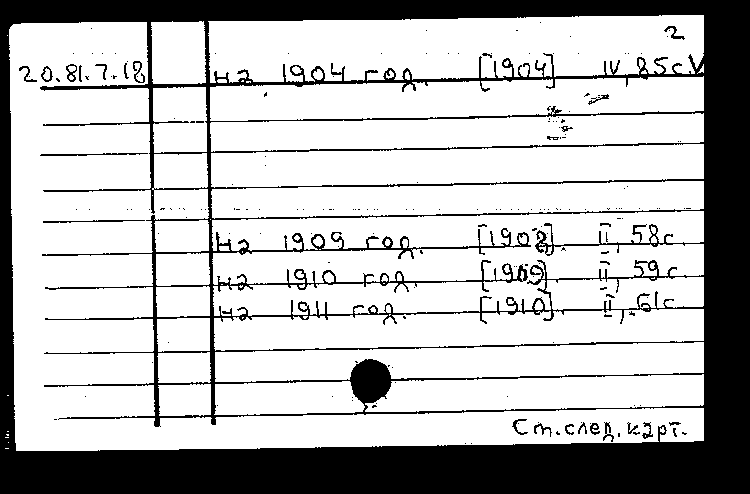 2
20.81.7.18 на 1904 год. [1904] IV, 85с V
на 1909 год. [1908]. II, 58с.
на 1910 год. [1909] II, 59с.
на 1911 год. [1910]. II, 61с
Ст.след.карт.